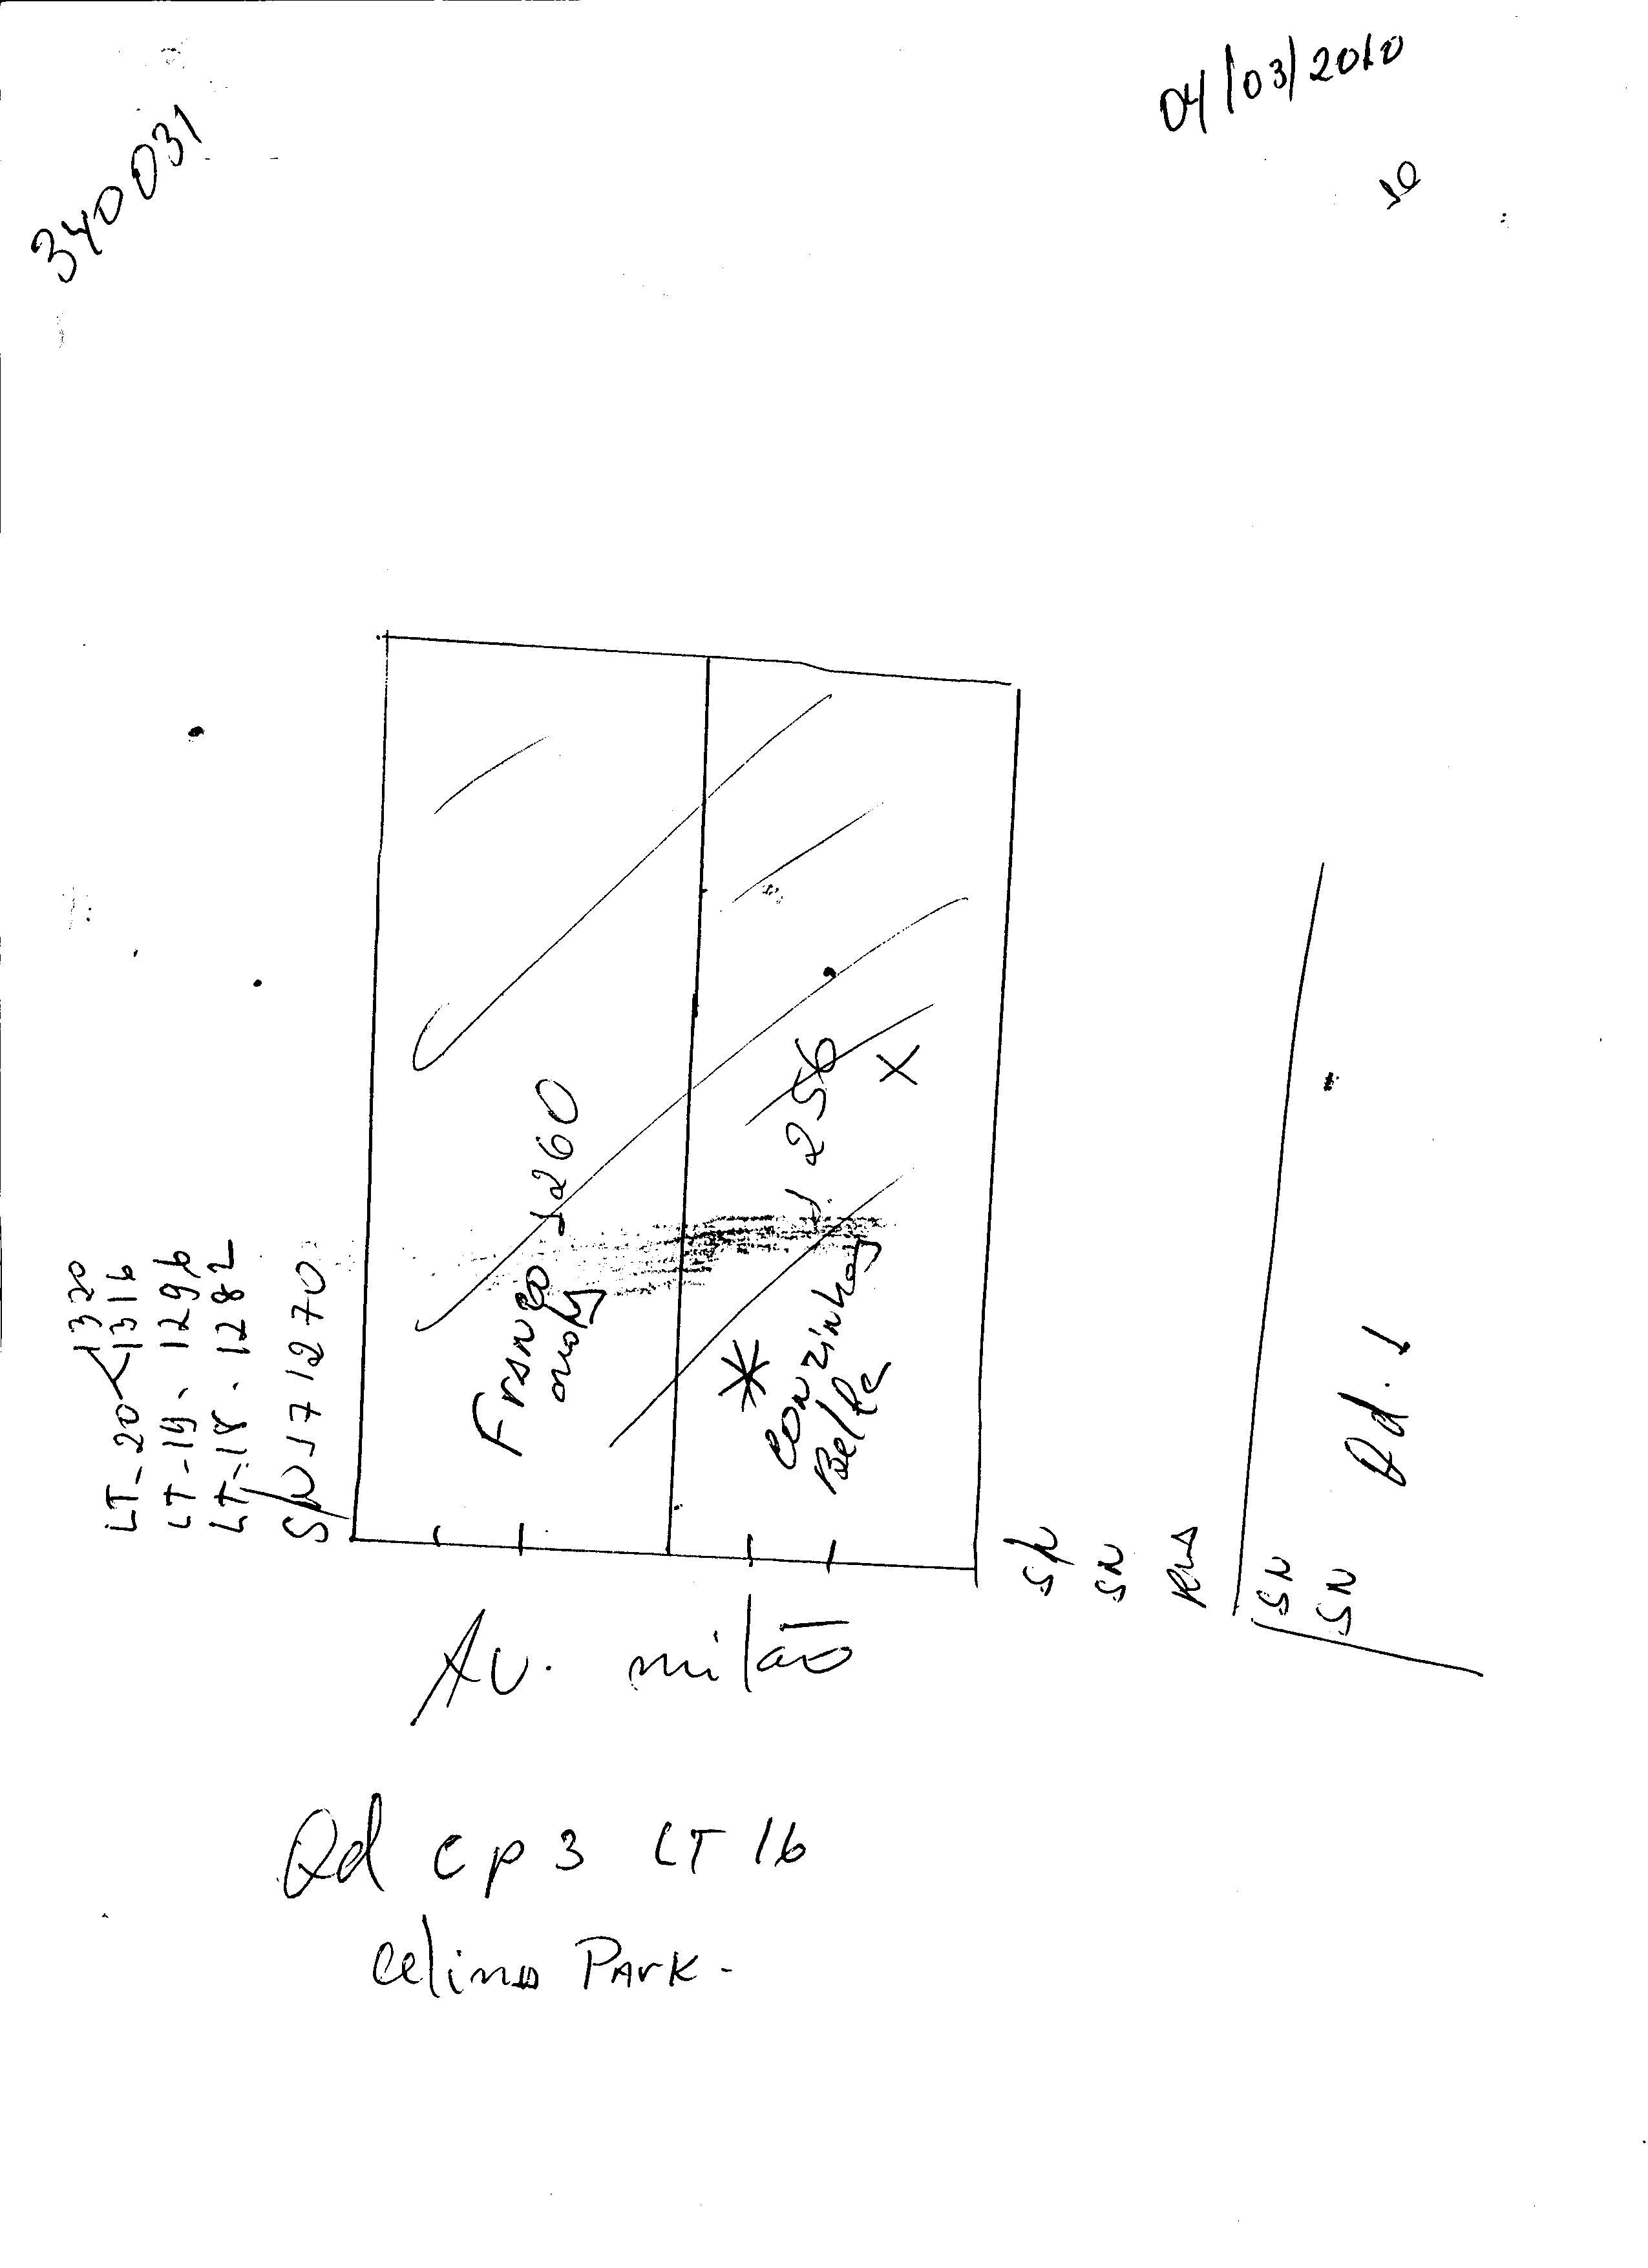 04/03/2010
340031
LT-20 1320
1316
LT-19. 1296
LT-18. 1282
S/N 17 1270
1260
1256
X
*
conzinhas
Belle
S/N
SN
Rua
SN
SN
Qd. 1
Av. milão
Qd cp 3 LT 16
Celina Park.